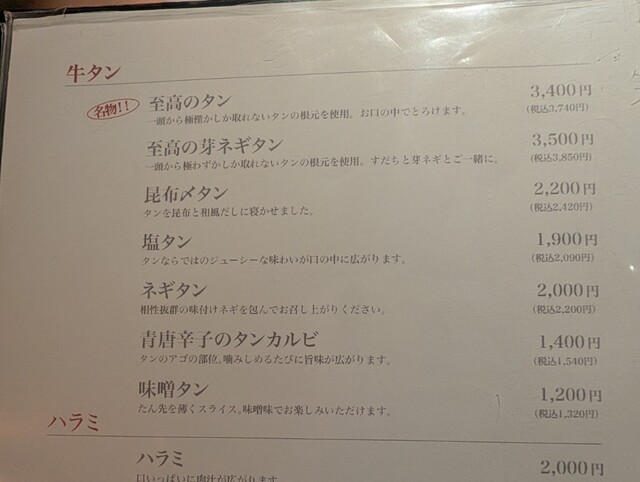 牛タン
名物!!
至高のタン 3,400円
一頭から極僅かしか取れないタンの根元を使用。お口の中でとろけます。 (税込3,740円)
至高の芽ネギタン 3,500円
一頭から極わずかしか取れないタンの根元を使用。すだちと芽ネギとご一緒に。 (税込3,850円)
昆布〆タン 2,200円
タンを昆布と和風だしに寝かせました。 (税込2,420円)
塩タン 1,900円
タンならではのジューシーな味わいが口の中に広がります。 (税込2,090円)
ネギタン 2,000円
相性抜群の味付けネギを包んでお召し上がりください。 (税込2,200円)
青唐辛子のタンカルビ 1,400円
タンのアゴの部位。噛みしめるたびに旨味が広がります。 (税込1,540円)
味噌タン 1,200円
たん先を薄くスライス。味噌味でお楽しみいただけます。 (税込1,320円)
ハラミ
ハラミ 2,000円
口いっぱいに肉汁が広がります